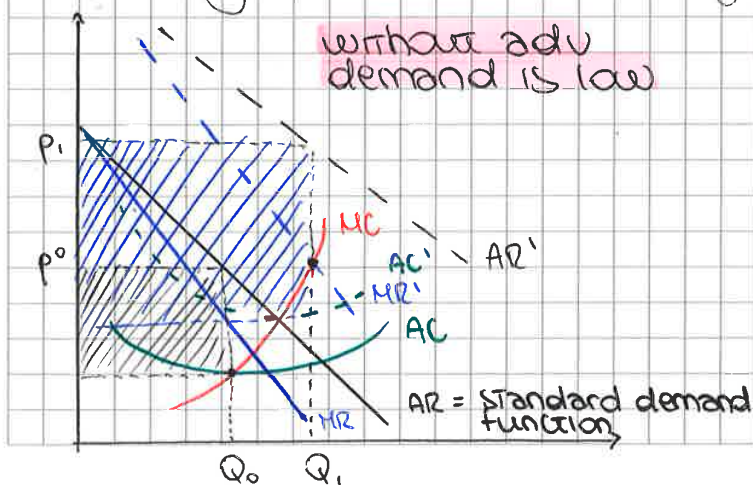 without adv
demand is low
P₁
MC
P⁰
AC'
AR'
MR'
AC
AR = standard demand
function
MR
Q₀
Q₁